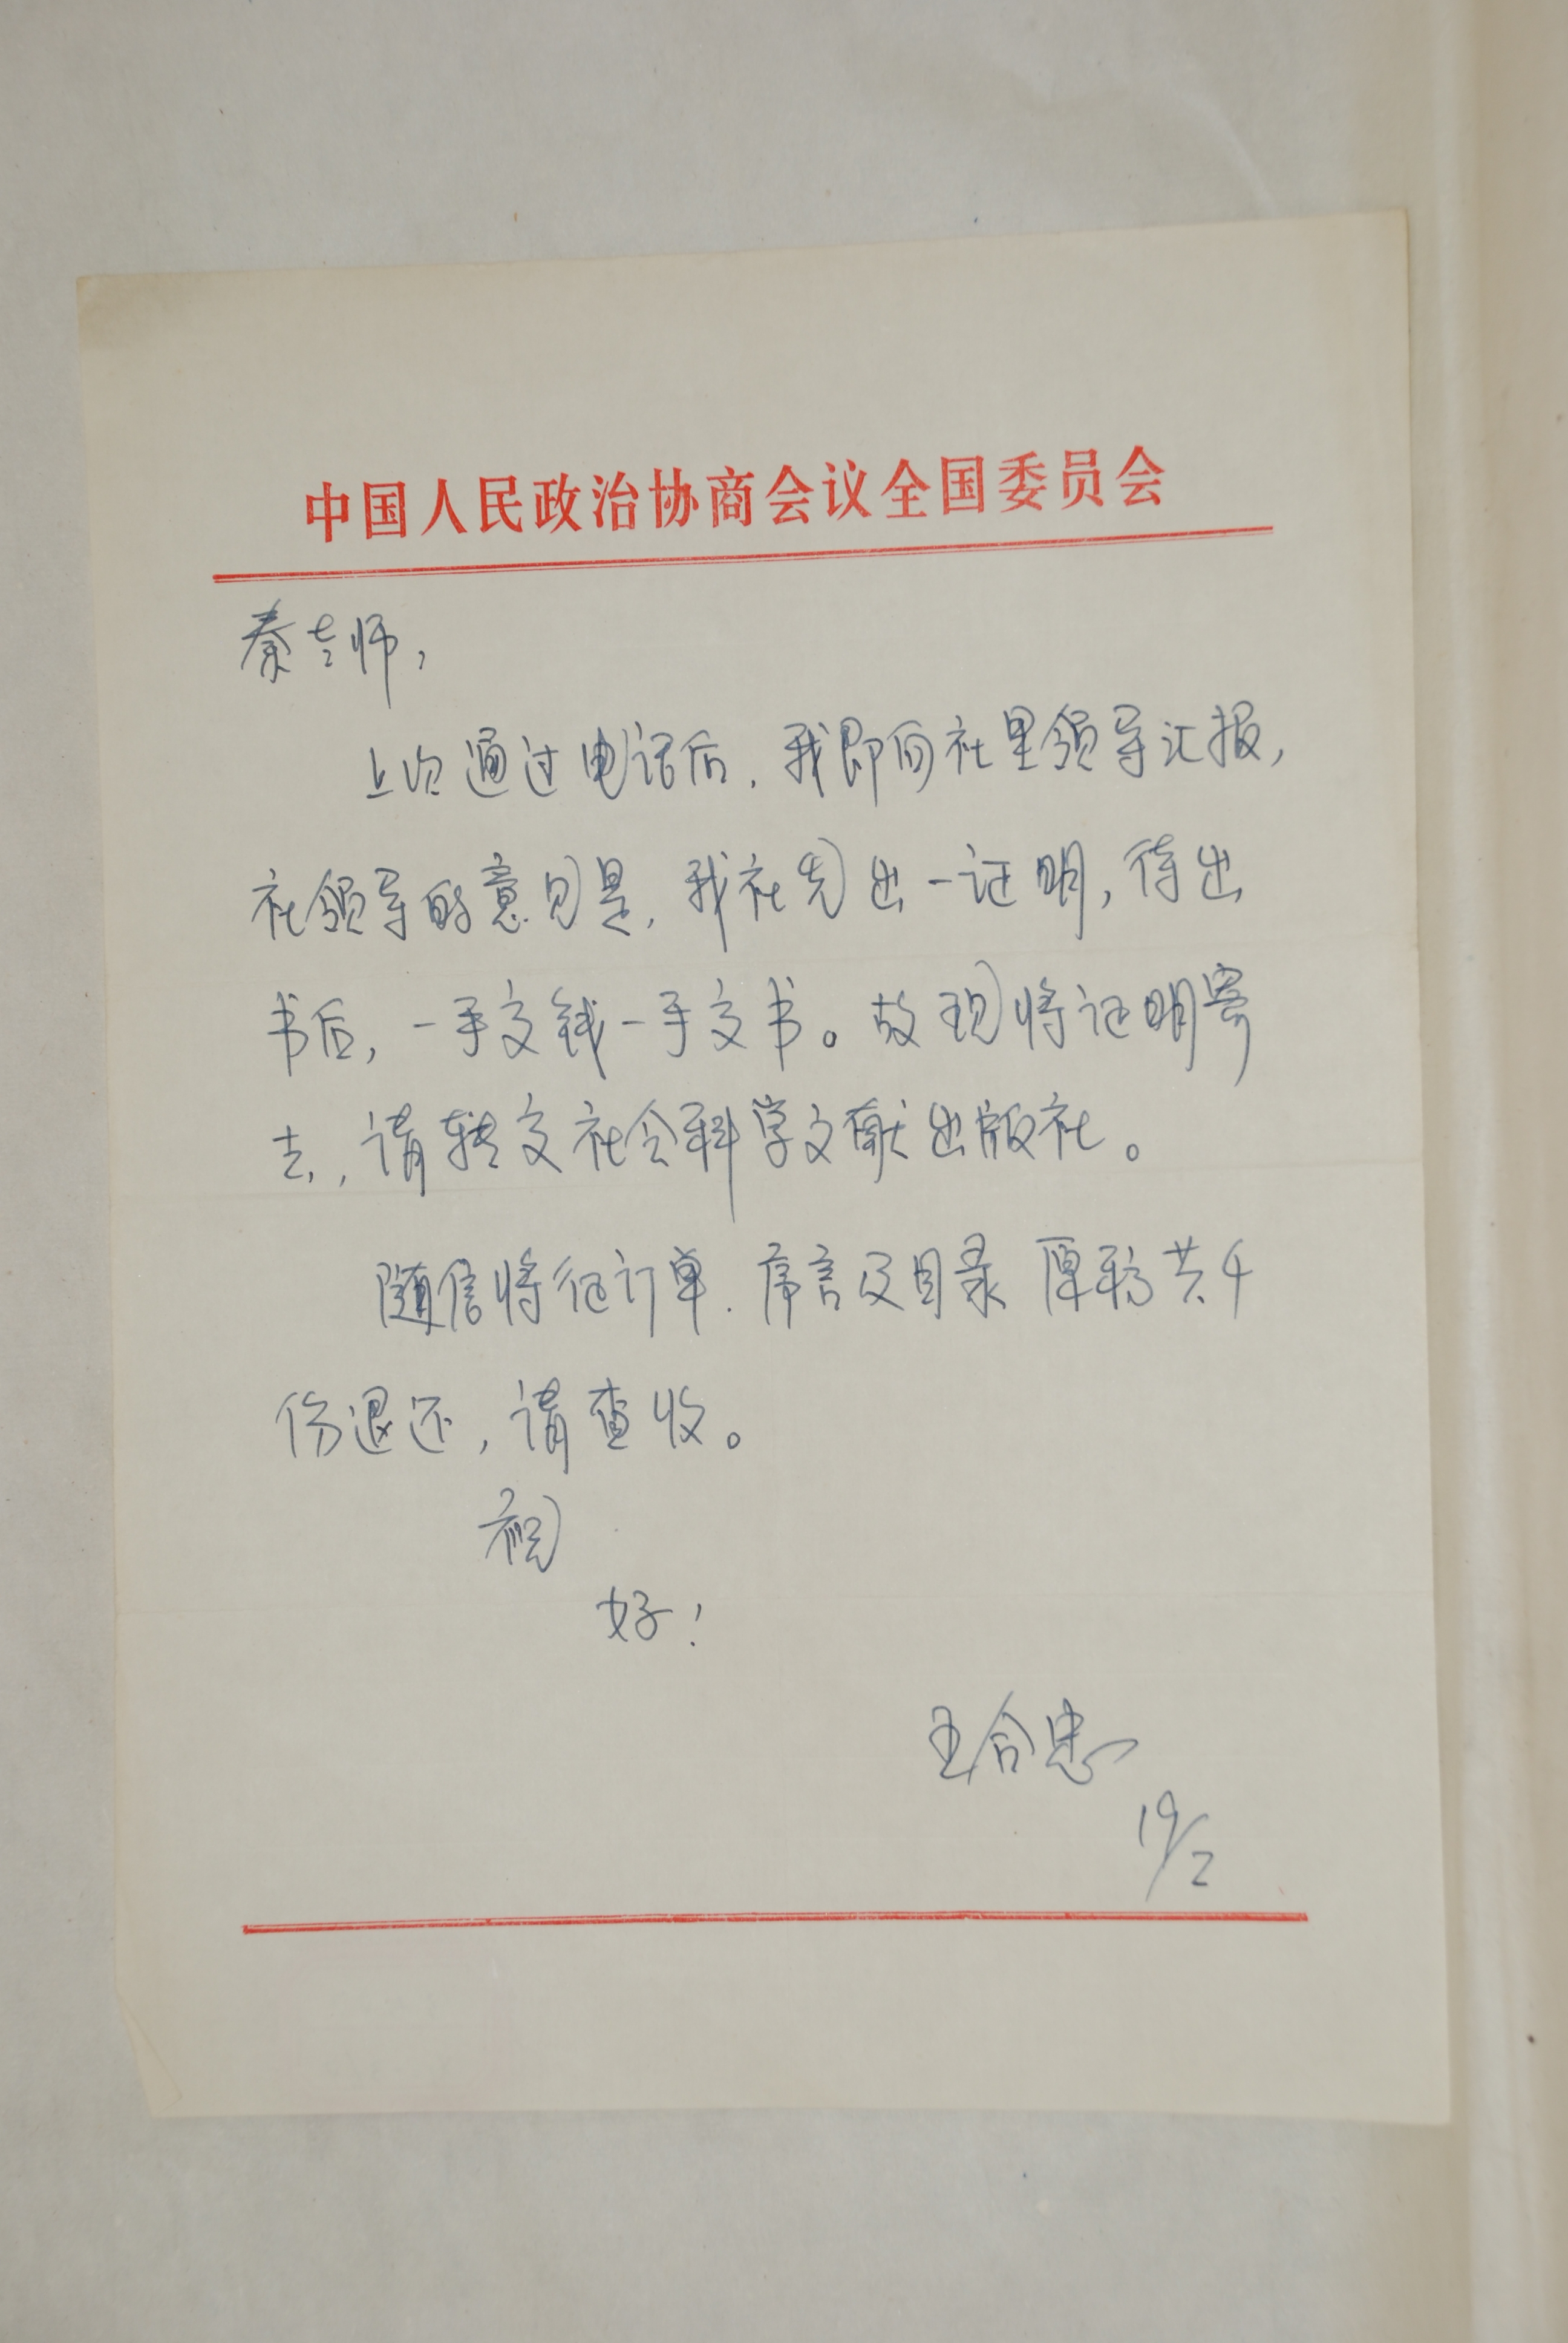 中国人民政治协商会议全国委员会
秦老师,
上次通过电话后,我即向社里领导汇报,
社领导的意见是,我社先出一证明,待出
书后,一手交钱一手交书。故现将证明寄
去,请转交社会科学文献出版社。
随信将征订单、序言及目录原稿共4
份退还,请查收。
祝
好!
王合忠
19/2